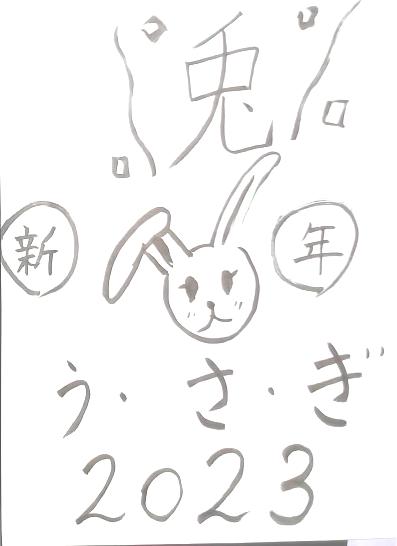 兎
新年
う・さ・ぎ
2023